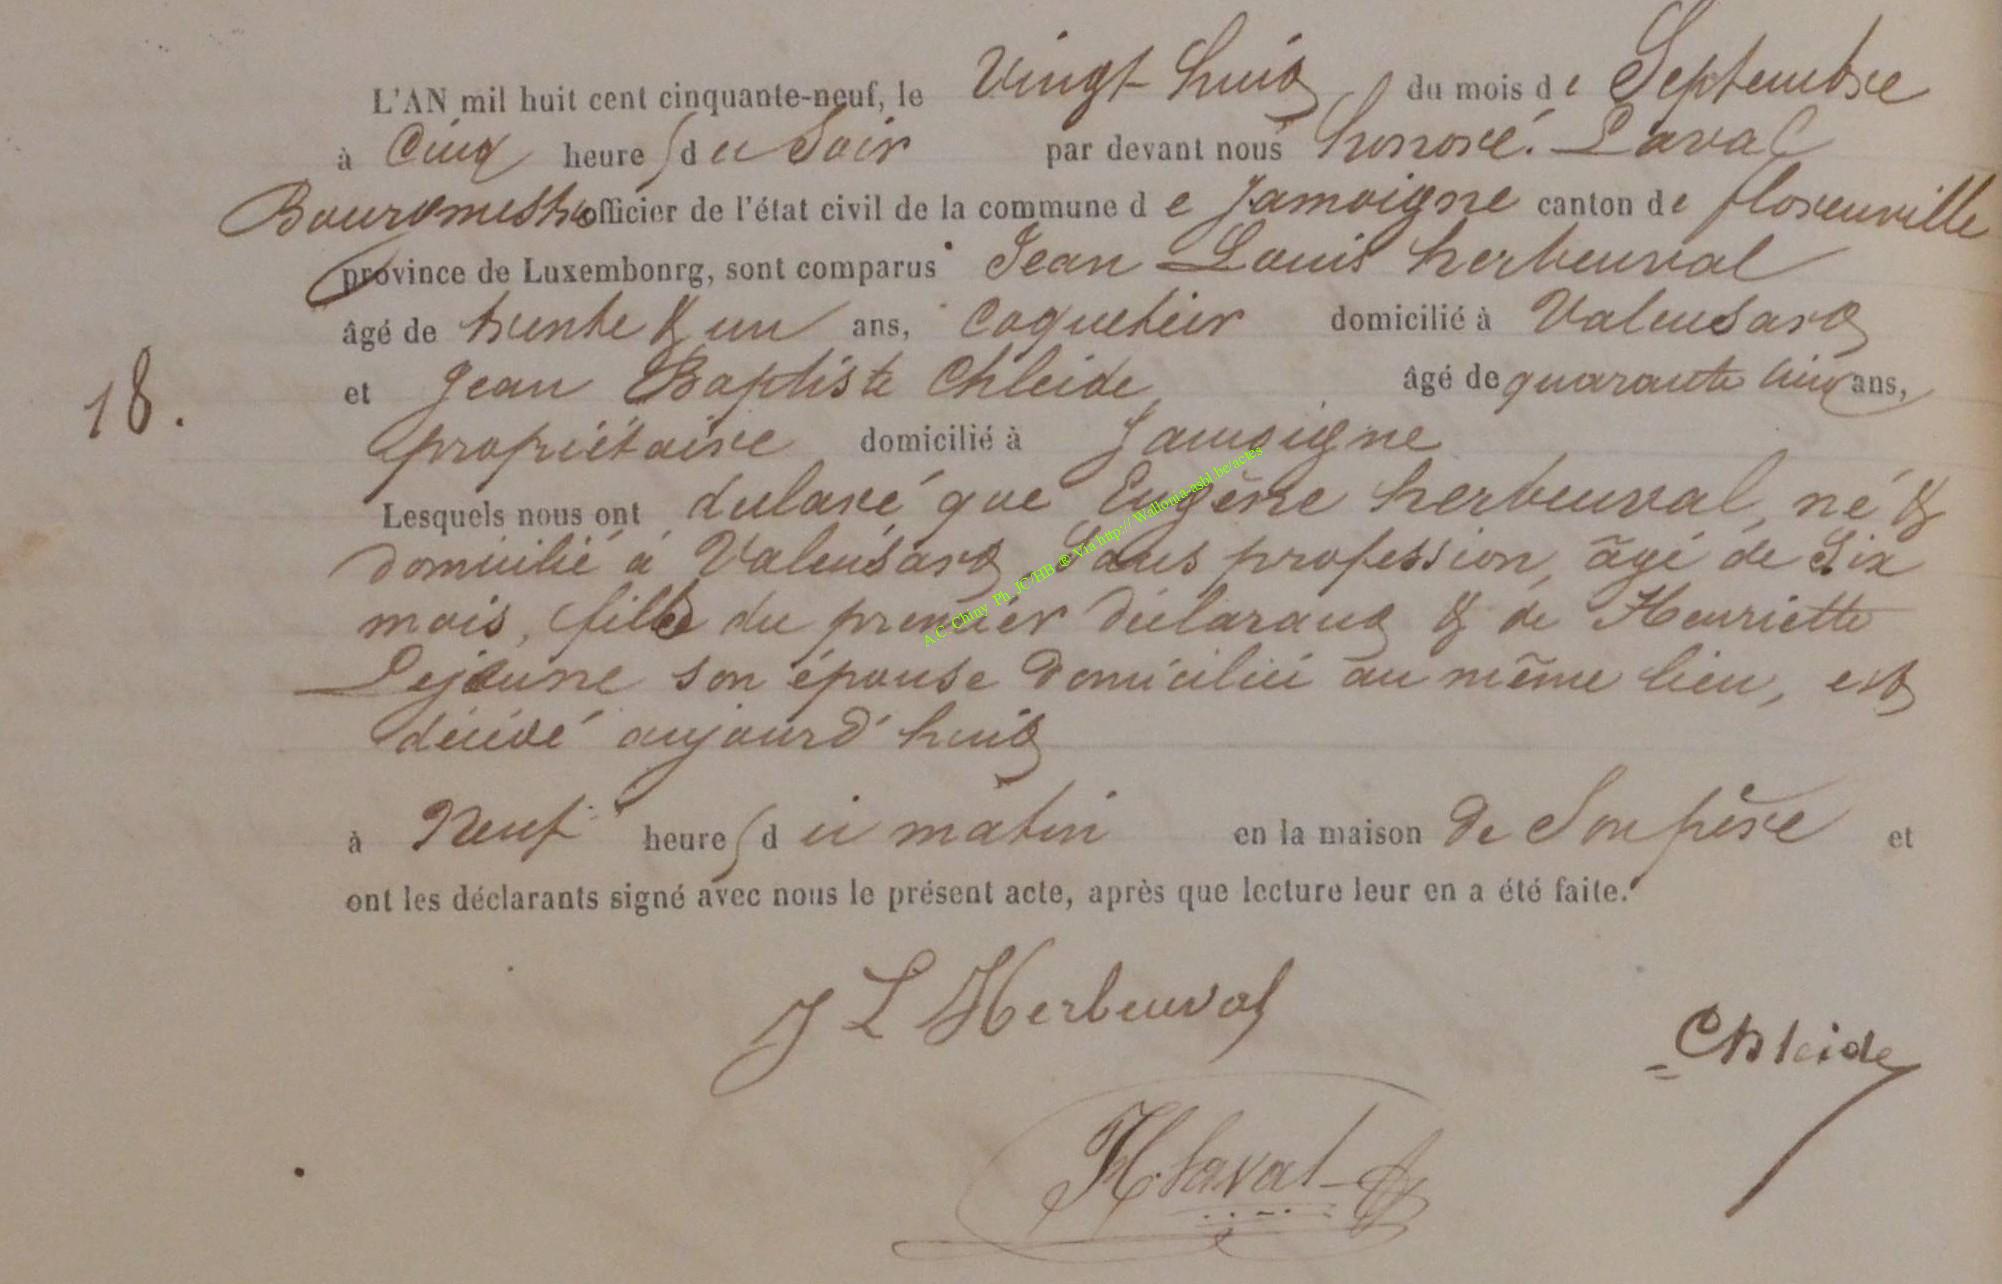 L'AN mil huit cent cinquante-neuf, le Vingt huit du mois de Septembre
à Cinq heures du Soir par devant nous honoré Laval
Bourgmestre officier de l'état civil de la commune de Jamoigne canton de florenville
province de Luxembonrg, sont comparus Jean Louis herbeuval
âgé de trente & un ans, Coquetier domicilié à Valensart
18. et Jean Baptiste Chleide, âgé de quarante cinq ans,
propriétaire domicilié à Jamoigne
Lesquels nous ont déclaré que Eugène herbeuval, né &
domicilié à Valensart, Sans profession, âgé de Six
mois, fils du premier déclarant & de Henriette
Lejeune son épouse domiciliée au même lieu, est
décédé aujourd'huit
à Neuf heures du matin en la maison de Son père et
ont les déclarants signé avec nous le présent acte, après que lecture leur en a été faite.
J L Herbeuval
Chleide
H Laval
A.C. Chiny Ph. JC/HB ® Via http:// Wallonia-asbl.be/actes